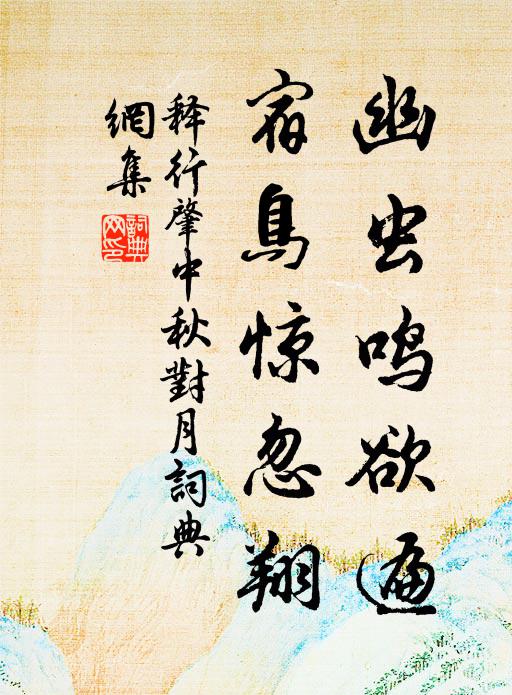 幽虫鸣欲遍
宿鳥惊忽翔
释行肇中秋對月詞典
網集
詞典
网印